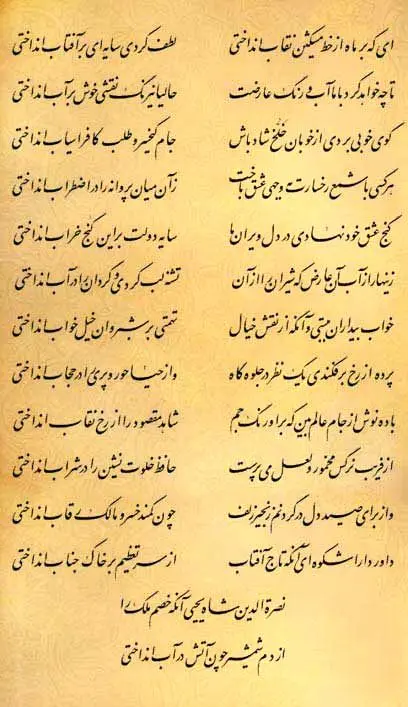 ای که بر ماه از خط مشکین نقاب انداختی لطف کردی سایه ای بر آفتاب انداختی
تا چه خواهد کرد با ما آب و رنگ عارضت حالیا نیرنگ نقشی خوش بر آب انداختی
گوی خوبی بردی از خوبان خلخ شاد باش جام کیخسرو طلب کافراسیاب انداختی
هر کسی با شمع رخسارت به وجهی عشق باخت زان میان پروانه را در اضطراب انداختی
گنج عشق خود نهادی در دل ویران ما سایه دولت بر این کنج خراب انداختی
زینهار از آب آن عارض که شیران را از آن تشنه لب کردی و گردان را در آب انداختی
خواب بیداران ببستی وآنگه از نقش خیال تهمتی بر شبروان خیل خواب انداختی
پرده از رخ برفکندی یک نظر در جلوه گاه واز حیا حور و پری را در حجاب انداختی
باده نوش از جام عالم بین که بر اورنگ جم شاهد مقصود را از رخ نقاب انداختی
از فریب نرگس مخمور و لعل می پرست حافظ خلوت نشین را در شراب انداختی
واز برای صید دل در گردنم زنجیر زلف چون کمند خسرو مالک رقاب انداختی
داور دارا شکوه ای آنکه تاج آفتاب از سر تعظیم بر خاک جناب انداختی
نصرة الدین شاه یحیی آنکه خصم ملک را
از دم شمشیر چون آتش در آب انداختی